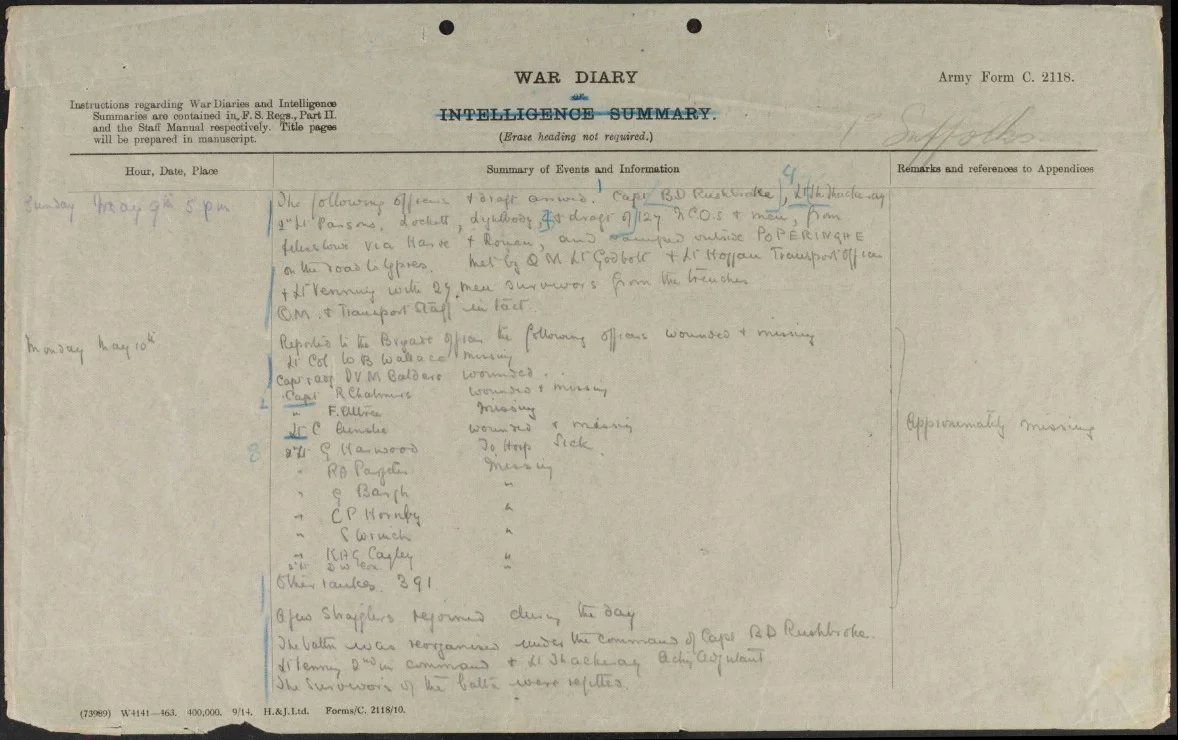 WAR DIARY
or
INTELLIGENCE SUMMARY.
(Erase heading not required.)
Army Form C. 2118.
Instructions regarding War Diaries and Intelligence
Summaries are contained in F. S. Regs., Part II.
and the Staff Manual respectively. Title pages
will be prepared in manuscript.
Suffolks
Hour, Date, Place
Summary of Events and Information
Remarks and references to Appendices
Sunday May 9th 5 pm
The following officers & draft arrived. Capt BD Rushbroke, Lt Thackeray
2nd Lt Parsons, Lockett, Lightbody, & draft of 127 N.C.O.s & men, from
Felixstowe via Havre & Rouen, and camped outside POPERINGHE
on the road to Ypres. Met by Q M Lt Godbolt & Lt Transport Officer
& Lt Venning with 29 men survivors from the trenches
Q.M. & Transport Staff in tact.
Monday May 10th
Reported to the Brigade Officer the following officers wounded & missing
Lt Col W B Wallace missing
Capt & adj DVM Balders wounded.
Capt R Chalmers wounded & missing
" F. Attree missing
Lt C wounded & missing
2nd Lt G Harwood To Hosp Sick.
" RB Missing
" G Bargh "
" CP Hornby "
" S Winch "
" KAG Cayley "
2nd Lt D W Cox "
Other ranks. 391
Approximately missing
8
A few Stragglers rejoined during the day
The battn was reorganised under the command of Capt BD Rushbroke.
Lt Venning 2nd in command & Lt Thackeray Actg Adjutant.
The Survivors of the battn were refitted.
(73989) W4141—463. 400,000. 9/14. H.&J.Ltd. Forms/C. 2118/10.